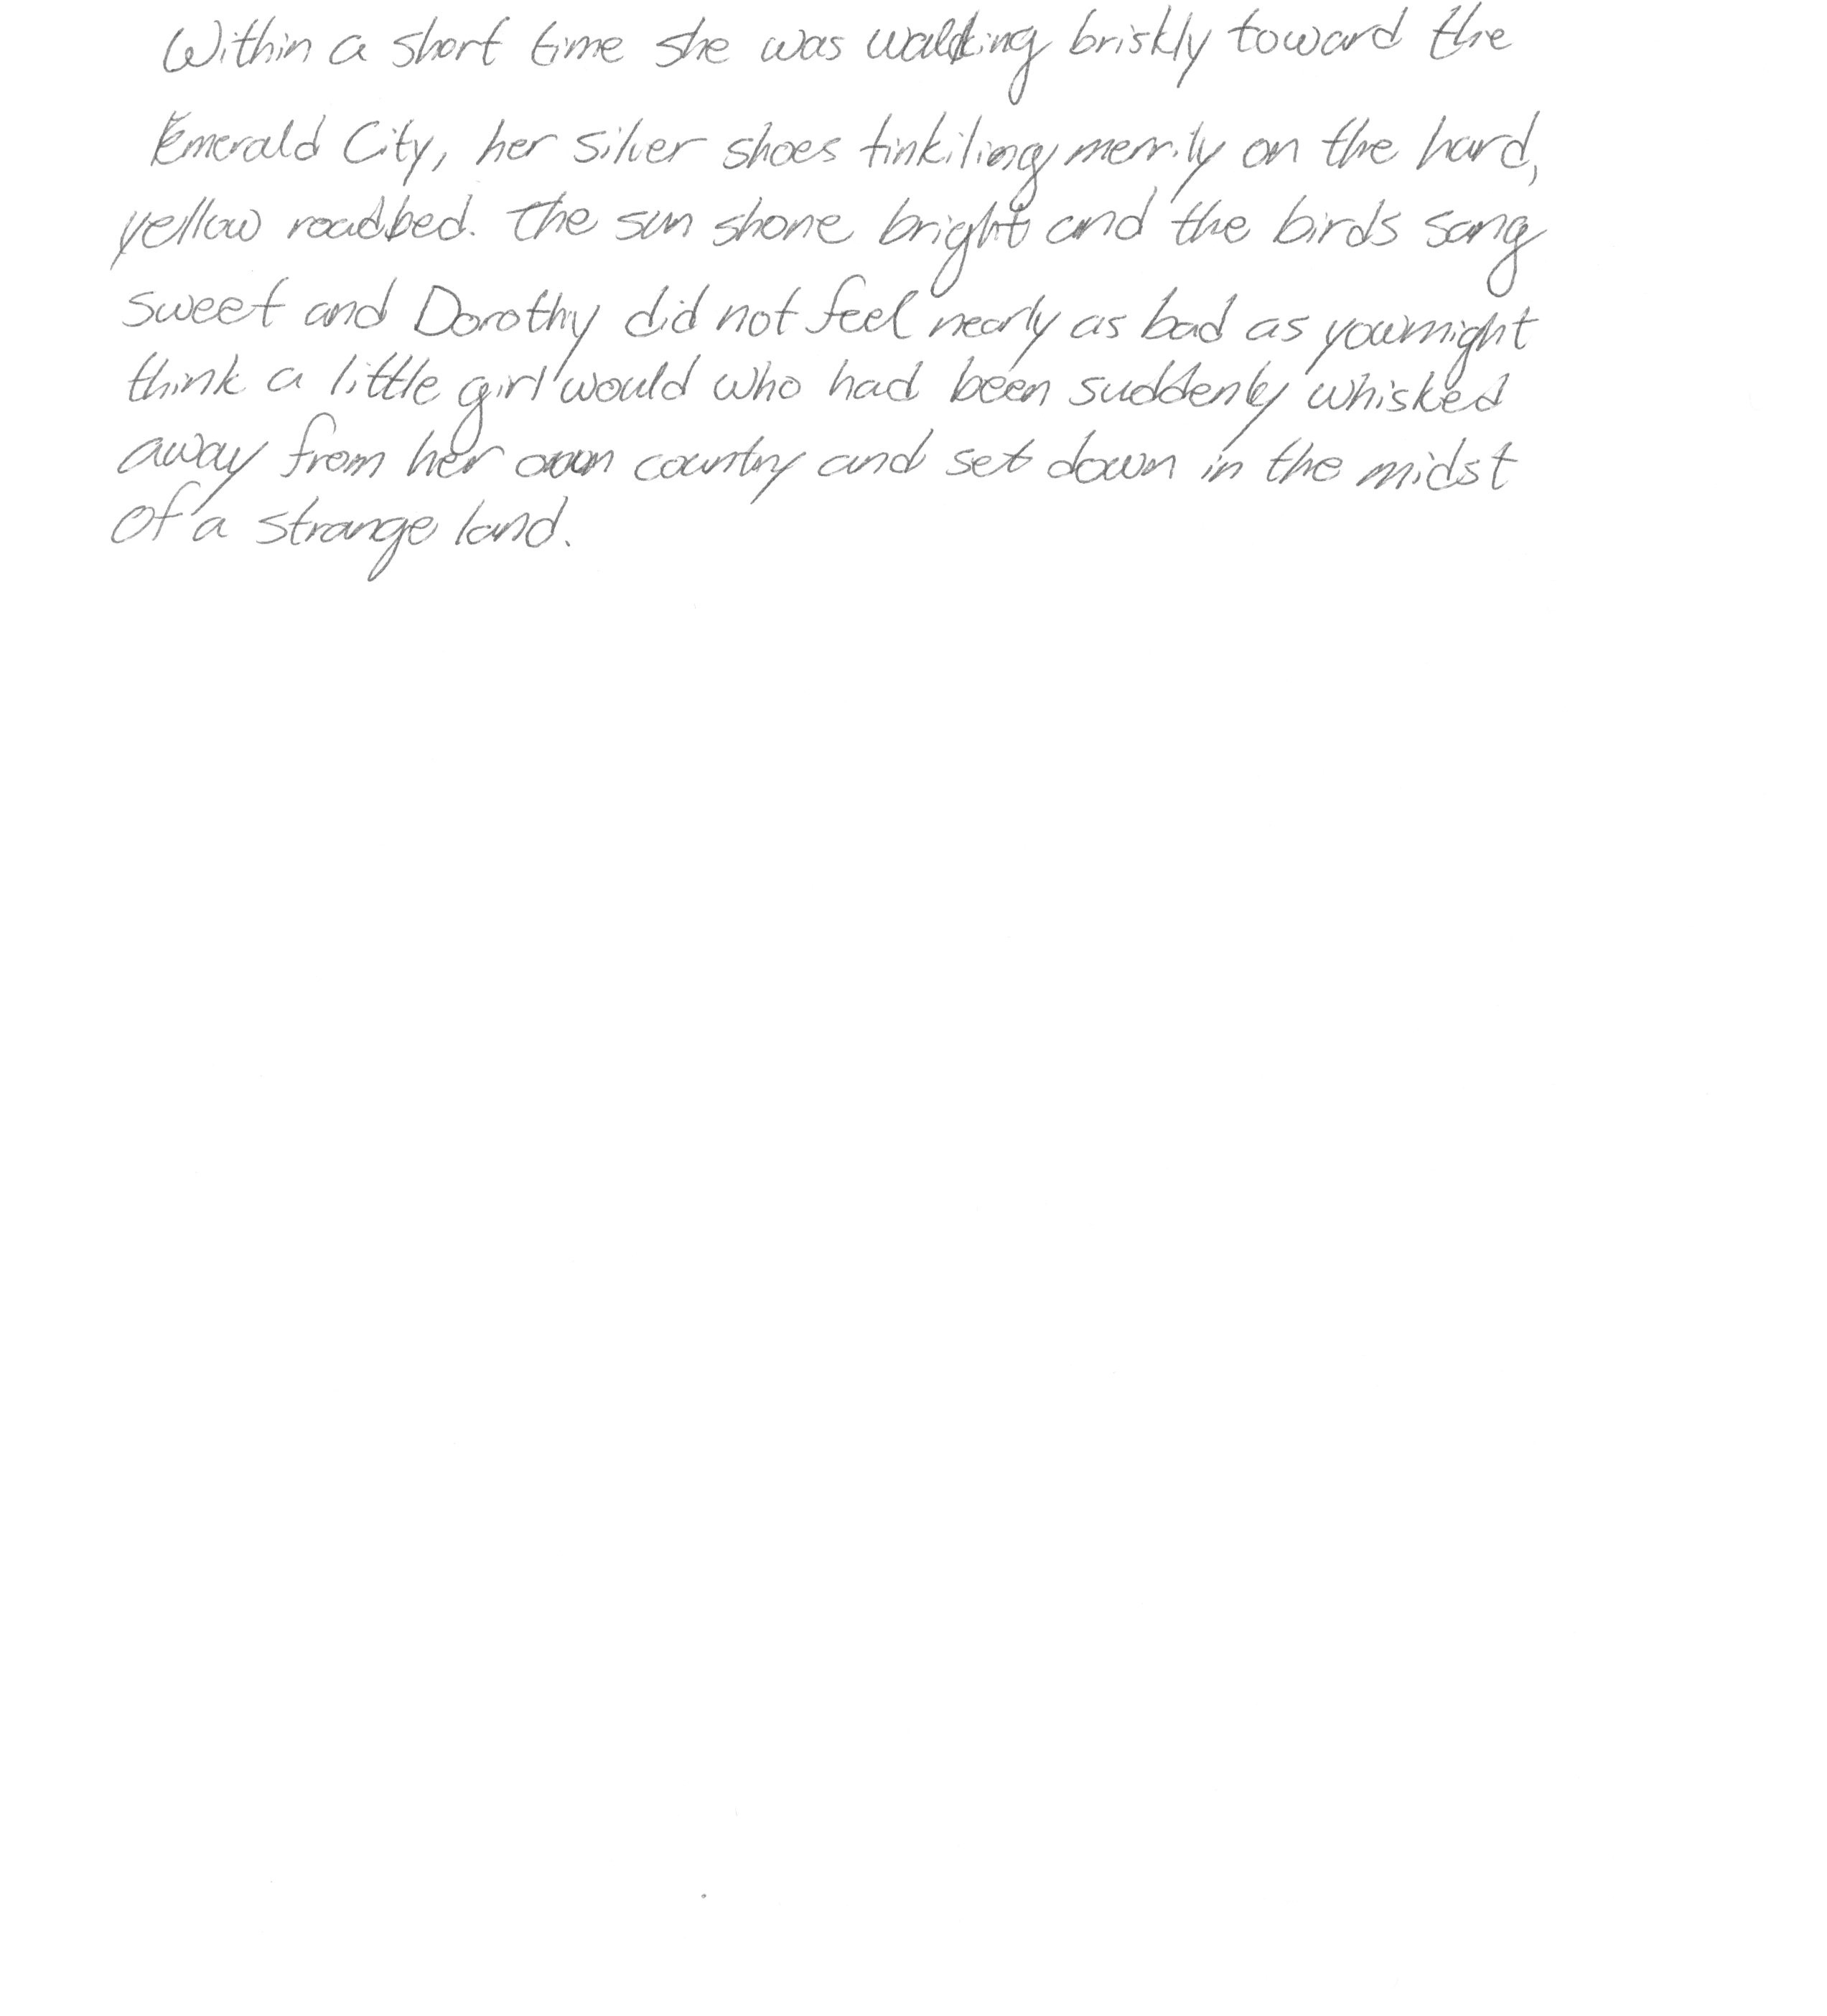 Within a short time she was walking briskly toward the
Emerald City, her silver shoes tinkiling merrily on the hard,
yellow roadbed. The sun shone bright and the birds sang
sweet and Dorothy did not feel nearly as bad as you might
think a little girl would who had been suddenly whisked
away from her own country and set down in the midst
of a strange land.